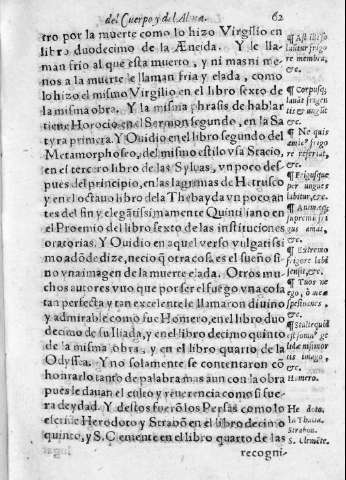 del Cuerpo y del Alma. 62
tro por la muerte como lo hizo Virgilio en
libro duodecimo de la Æneida. Y le lla-
man frio al que esta muerto, y ni mas ni me-
nos a la muerte le llaman fria y elada, como
lo hizo el mismo Virgilio en el libro sexto de
la misma obra. Y la misma phrasis de hablar
tiene Horocio en el Sermon segundo, en la Sa
tyra primera. Y Ouidio en el libro segundo del
Metamorphoseo, del mismo estilo vsa Stacio,
en el tercero libro de las Syluas, vn poco des-
pues del principio, en las lagrimas de Hetrusco
y en el octauo libro dela Thebayda vn poco an
tes del fin y elegātissimamente Quintiliano en
el Proemio del libro sexto de las instituciones
oratorias. Y Ouidio en aquel verso vulgatissi
mo adōde dize, necio q̄ otra cosa es el sueño si-
no vna imagen de la muerte elada. Otros mu-
chos autores vuo que por ser el fuego vna cosa
tan perfecta y tan excelente le llamaron diuino
y admirable como fue Homero, en el libro duo
decimo de su Iliada, y en el libro decimo quinto
de la misma obra, y en el libro quarto de la
Odyssea. Y no solamente se contentaron cō
honrarlo tanto de palabra mas aun con la obra
pues le dauan el culto y reuerencia como si fue-
ra deydad. Y destos fuerō los Persas como lo
escriue Herodoto y Strabō en el libro decimo
quinto, y S. Clemente en el libro quarto de las
recogni-
¶ Ast illi so
luūtur frigo
re membra,
&c.
¶ Corpusq́;
lauāt frigen
tis et vngūt
&c.
¶ Ne quis
amic⁹ frigo
re feriat,
&c.
¶ Frigusque
per ungues
labitur, &c.
¶ Animaq́;
supremū fri
gus amat,
&c.
¶ Extremo
frigore labi
sensit, &c.
¶
&c.
¶ Stulte quid
est somn⁹ ge
lidæ nisi mor
tis imago,
&c.
Homero.
Herodoto.
Strabon.
S. Clemēte.